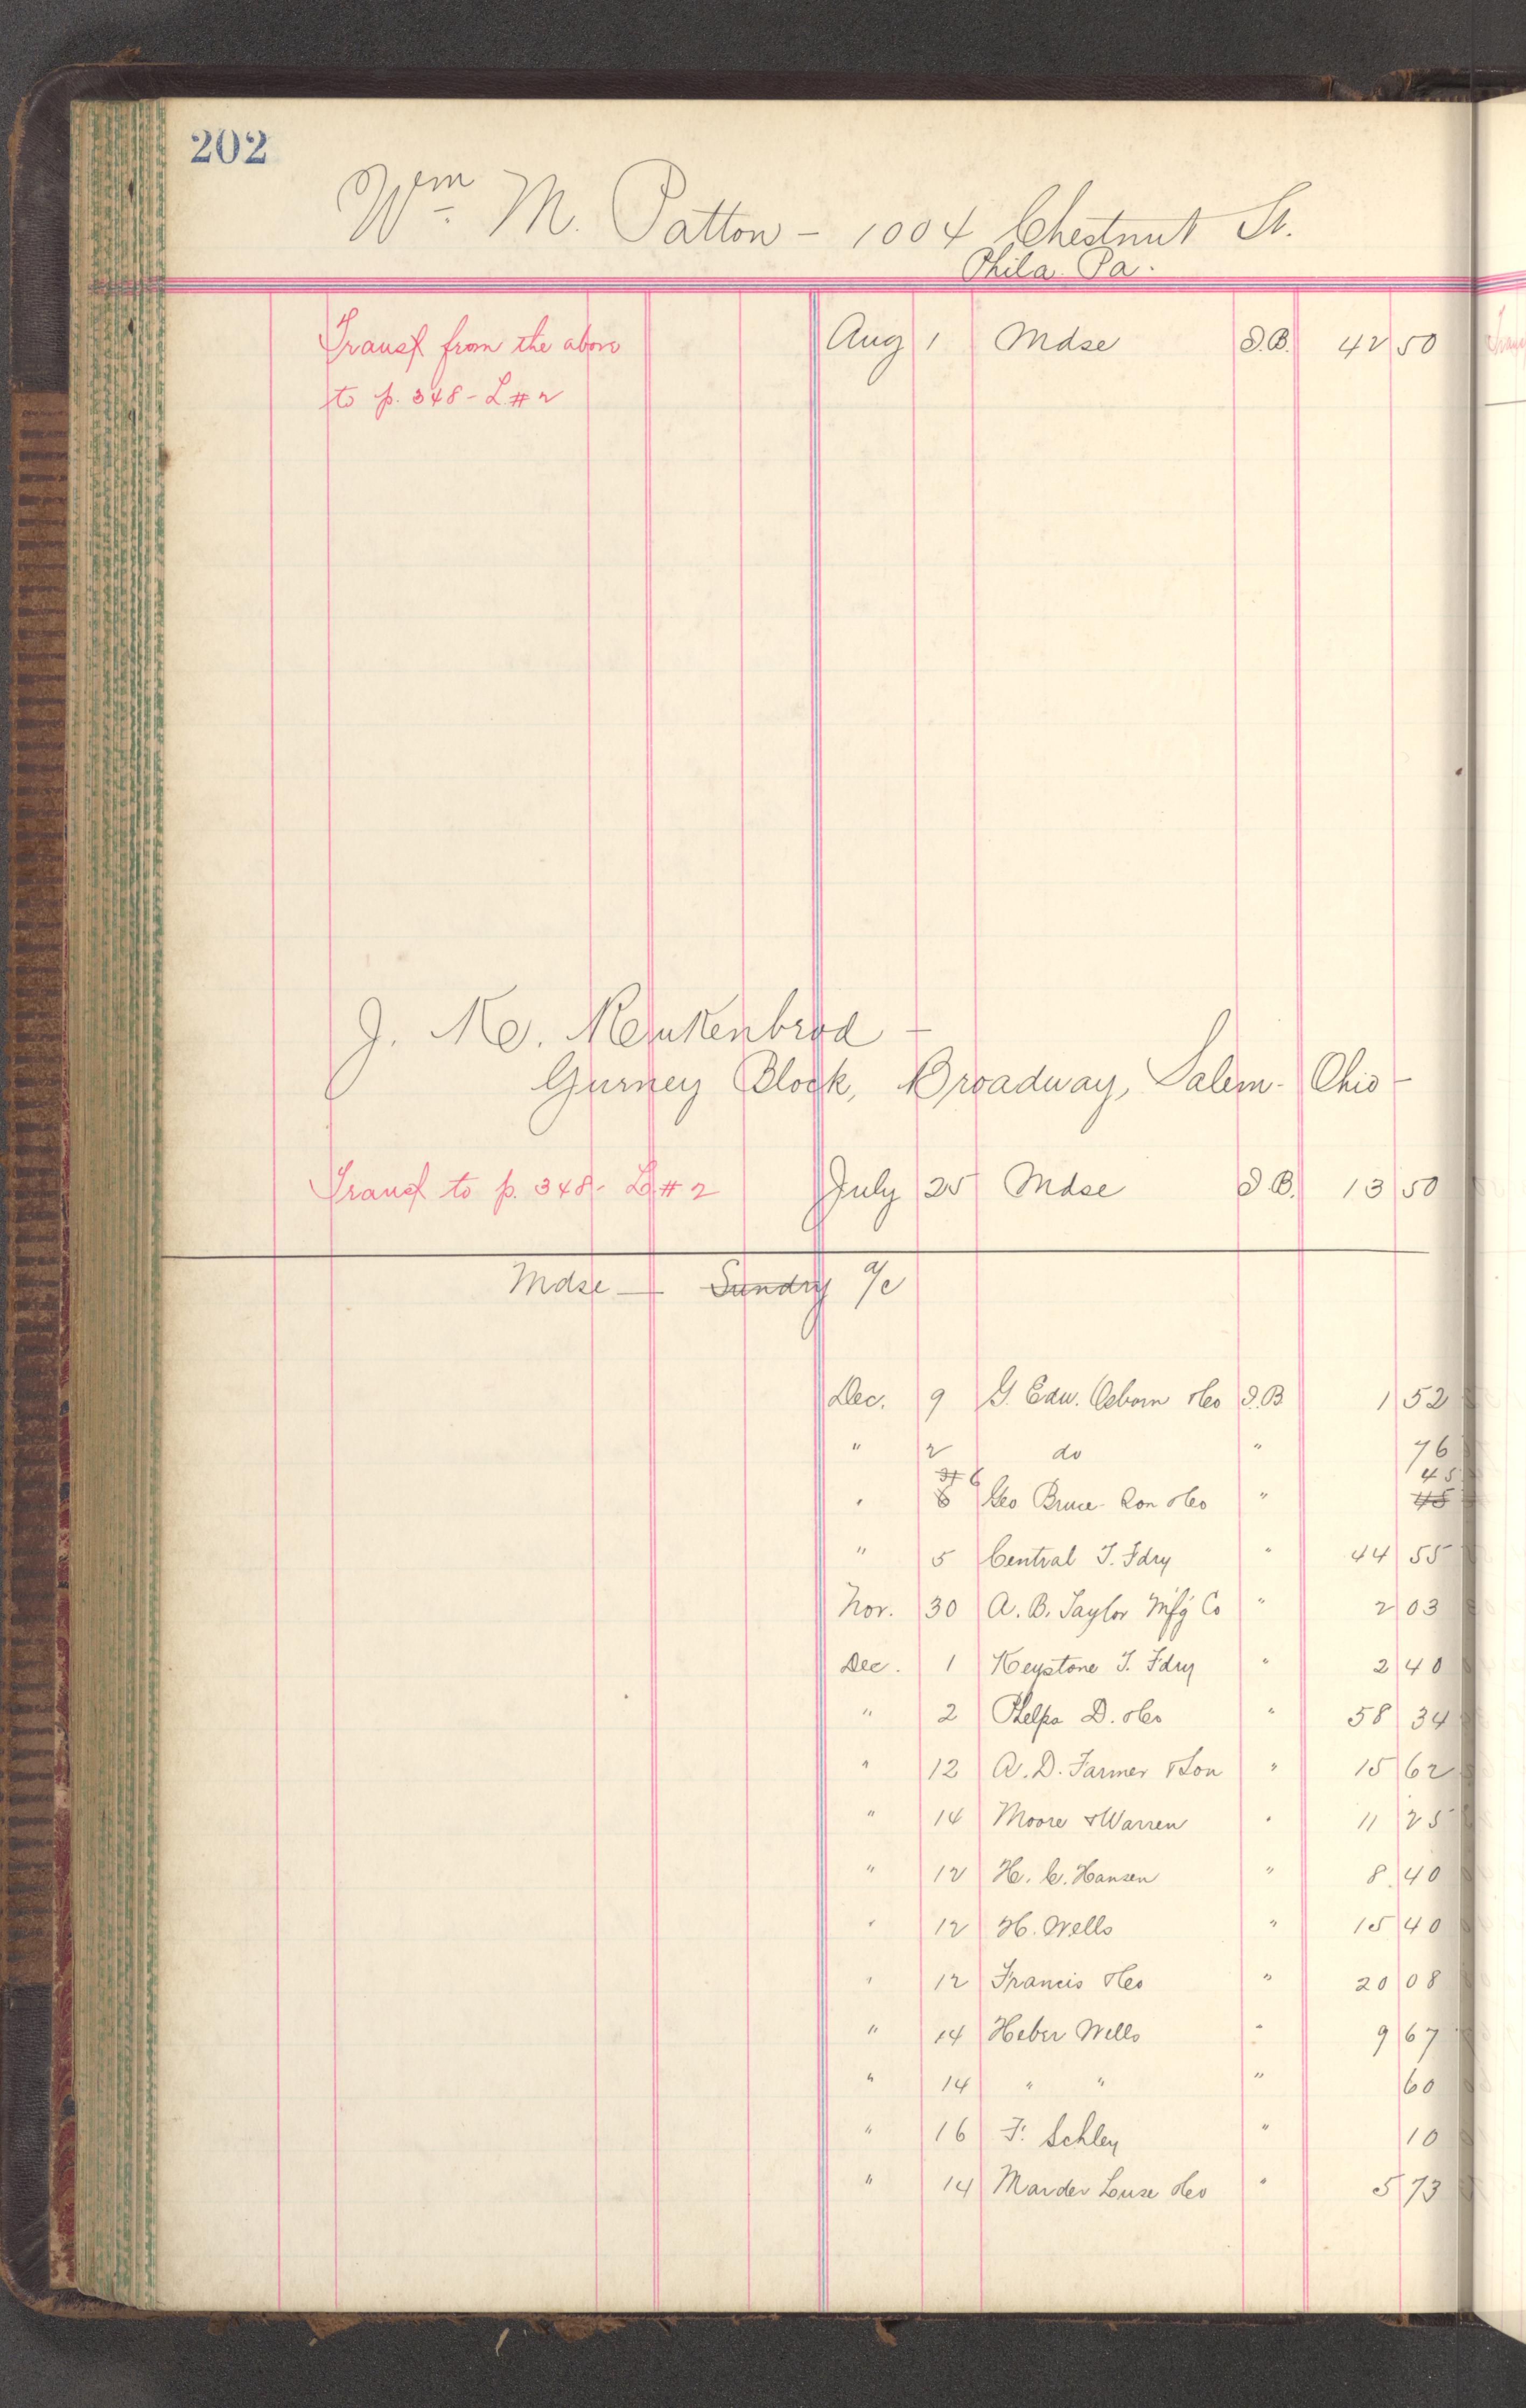 202
Wm M. Patton – 1004 Chestnut St.
Phila. Pa.
Transf from the above Aug 1 Mdse S.B. 42 50
to p. 348 – L # 2
J. K. Rukenbrod –
Gurney Block, Broadway, Salem - Ohio –
Transf to p. 348 - L # 2 July 25 Mdse S.B. 13 50
Mdse — Sundry a/c
Dec. 9 G. Edw. Osborn & Co S.B 1 52
" 2 do " 76
" 6 Geo Bruce Son & Co " 45
" 5 Central T. Fdry " 44 55
Nov. 30 A. B. Taylor Mf'g Co " 2 03
Dec. 1 Keystone T. Fdry " 2 40
" 2 Phelps D. & Co " 58 34
" 12 A. D. Farmer & Son " 15 62
" 14 Moore & Warren " 11 25
" 12 H. C. Hansen " 8 40
" 12 H. Wells " 15 40
" 12 Francis & Co " 20 08
" 14 Heber Wells " 9 67
" 14 " " " 60
" 16 F. Schley " 10
" 14 Marder Luse & Co " 5 73